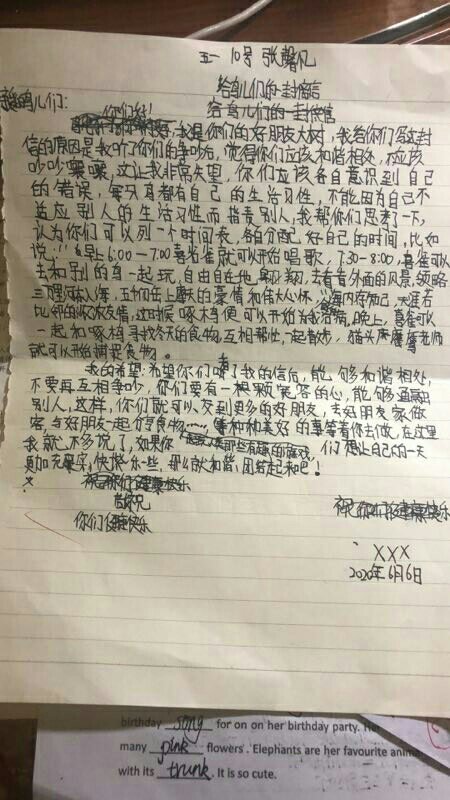 五一 10号 张馨凡
给鸟儿们的一封信
给鸟儿们的一封信
鸟儿们:
你们好!
我是你们的好朋友大树,我给你们写这封
信的原因是我听了你们的争吵后,觉得你们应该和谐相处,不应该
吵吵嚷嚷,这让我非常失望,你们应该各自意识到自己
的错误,每只鸟都有自己的生活习性,不能因为自己不
适应别人的生活习性而指责别人,我帮你们思考了一下,
认为你们可以列一个时间表,各自分配好自己的时间,比如
说:“早上6:00—7:00喜雀就可以开始唱歌,7:30-8:00,喜雀可以
去和别的鸟一起玩,自由自在地翱翔,去看看外面的风景,领略
三山五岳上摩天的豪情和伟大心怀,海内存知己,天涯若
比邻的深深友情,这时候啄木鸟便可以开始为我治病,晚上,喜雀可以
一起和啄木鸟寻找冬天的食物,互相帮忙,一起散步,猫头鹰老师
就可以开始捕捉食物。
我的希望:希望你们看了我的信后,能够和谐相处,
不要再互相争吵,你们要有一颗宽容的心,能够通融
别人,这样,你们就可以交到更多的好朋友,去好朋友家做
客,与好朋友一起分享食物……,种种美好的事等着你去做,在这里
我就不多说了,如果你们想让自己的一天
更加充实,快快乐乐一些,那么就和谐,团结起来吧!
祝你们健康快乐
你们健康快乐
祝你们健康快乐
XXX
2020年6月6日
birthday song for on on her birthday party. Her
many pink flowers. Elephants are her favourite anima
with its trunk. It is so cute.